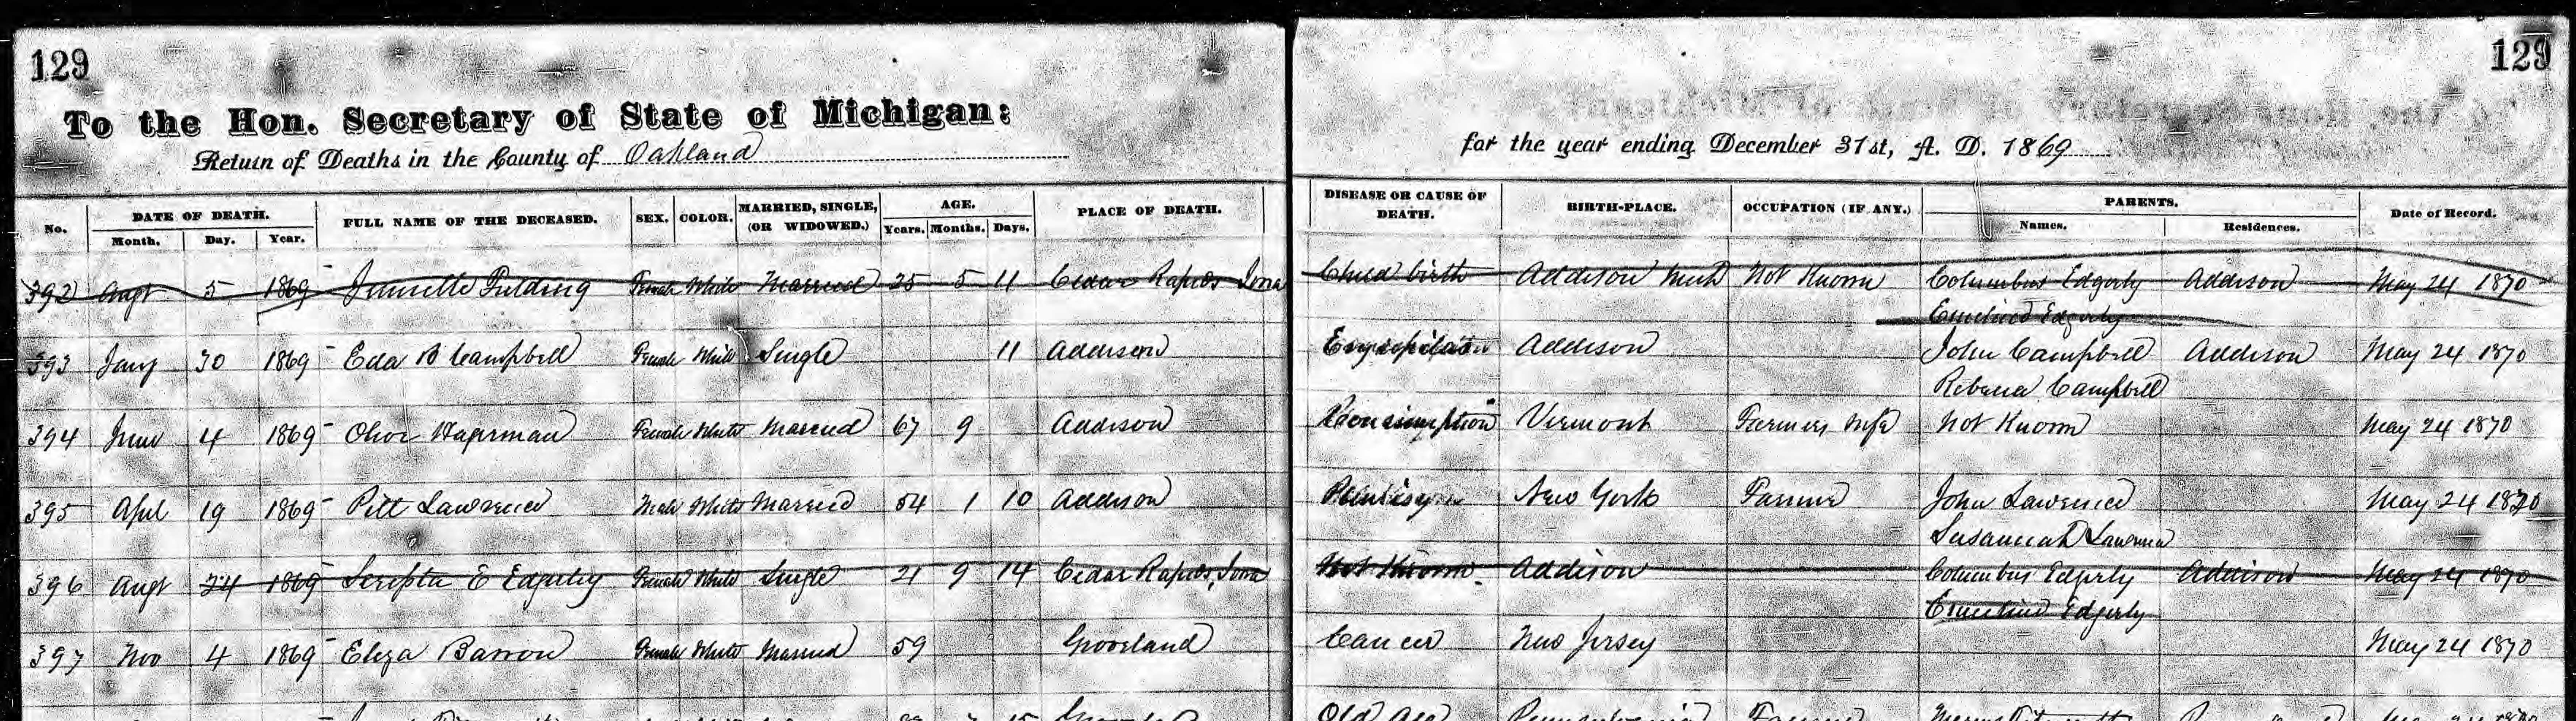 129
129
To the Hon. Secretary of State of Michigan:
Return of Deaths in the County of Oakland
for the year ending December 31st, A. D. 1869
No. DATE OF DEATH. FULL NAME OF THE DECEASED. SEX. COLOR. MARRIED, SINGLE, (OR WIDOWED.) AGE. PLACE OF DEATH. DISEASE OR CAUSE OF DEATH. BIRTH-PLACE. OCCUPATION (IF ANY.) PARENTS. Date of Record.
Month. Day. Year. Years. Months. Days. Names. Residences.
392 Augt 5 1869 Female White Married 25 5 11 Cedar Rapids Iowa Child birth Addison Mich Not Known Columbus Edgerly Addison May 24 1870
Emeline Edgerly
393 Jany 30 1869 Eda B Campbell Female White Single 11 Addison Addison John Campbell Addison May 24 1870
Rebecca Campbell
394 June 4 1869 Female White Married 67 9 Addison Consumption Vermont Farmers Wife Not Known May 24 1870
395 Apul 19 1869 Pitt Lawrence Male White Married 54 1 10 Addison New York Farmer John Lawrence May 24 1870
Susannah Lawrence
396 Augt 24 1869 E Edgerly Female White Single 21 9 14 Cedar Rapids, Iowa Not Known Addison Columbus Edgerly Addison May 24 1870
Emeline Edgerly
397 Nov 4 1869 Eliza Barron Female White Married 59 Groveland Cancer New Jersey May 24 1870
Old Age Pennsylvania Farmer